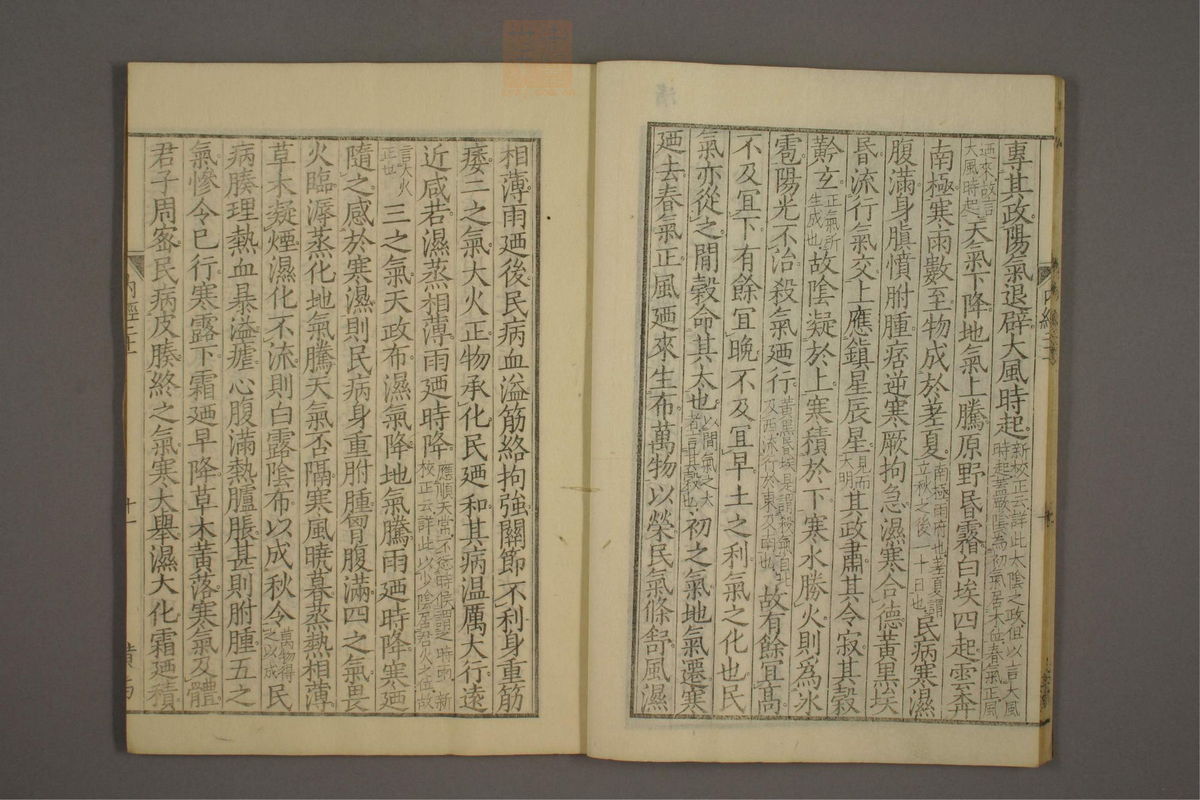 專其政陽氣退辟大風時起新校正云詳此太陰之政但以言大風時起蓋厥陰為初氣居木位春氣正風
廼來故言大風時起天氣下降地氣上騰原野昬霿白埃四起雲奔
南極寒雨數至物成於差夏南極雨府也差夏謂立秋之後一十日也民病寒濕
腹滿身䐜憤胕腫痞逆寒厥拘急濕寒合德黃黑埃
昬流行氣交上應鎮星辰星見而大明其政肅其令寂其穀
黅玄正氣所生成也故陰凝於上寒積於下寒水勝火則為冰
雹陽光不治殺氣廼行黃黑昬埃是謂殺氣自北及西流行於東及南也故有餘宜高
不及宜下有餘宜晚不及宜早土之利氣之化也民
氣亦從之閒穀命其太也以閒氣之大者言其穀也初之氣地氣遷寒
廼去春氣正風廼來生布萬物以榮民氣條舒風濕
相薄雨廼後民病血溢筋絡拘強關節不利身重筋
痿二之氣大火正物承化民廼和其病温厲大行遠
近咸若濕蒸相薄雨廼時降應順天常不愆時候謂之時雨 新校正云詳此以少陰居君火之位故
言大火正也三之氣天政布濕氣降地氣騰雨廼時降寒廼
隨之感於寒濕則民病身重胕腫胷腹滿四之氣畏
火臨溽蒸化地氣騰天氣否隔寒風曉暮蒸熱相薄
草木凝煙濕化不流則白露陰布以成秋令萬物得之以成民
病腠理熱血暴溢瘧心腹滿熱臚脹甚則胕腫五之
氣慘令已行寒露下霜廼早降草木黃落寒氣及體
君子周密民病皮腠終之氣寒大舉濕大化霜廼積
內經二十
十一